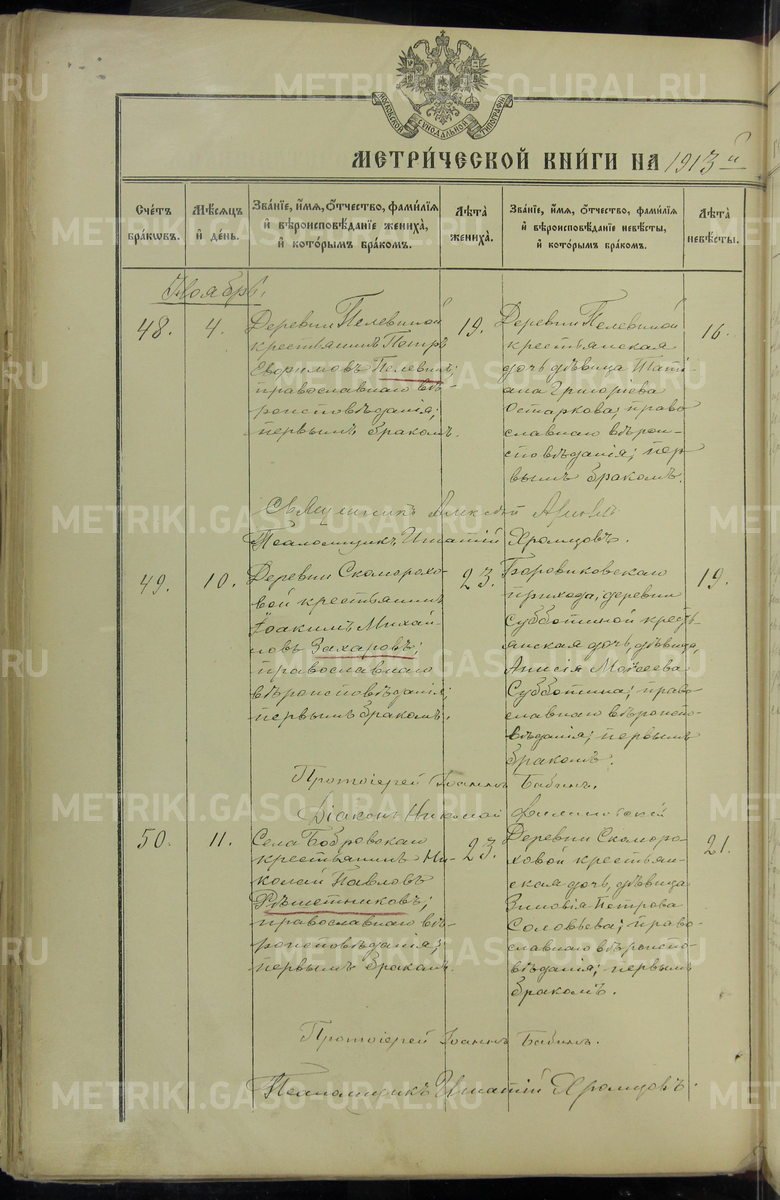 МОСКОВСКОЙ СѴНОДАЛЬНОЙ ТИПОГРАФІИ
МЕТРИ́ЧЕСКОЙ КНИ́ГИ НА 1913 й
Сче́тъ бра́кωвъ.
Мѣ́сяцъ и҆ де́нь.
Зва́нїе, и҆́мя, ѻ҆́тчество, фами́лїя
и҆ вѣроисповѣ́данїе жениха̀,
и҆ кото́рымъ бра́комъ.
Лѣ́та жениха̀.
Зва́нїе, и҆́мя, ѻ҆́тчество, фами́лїя
и҆ вѣроисповѣ́данїе невѣ́сты,
и҆ кото́рымъ бра́комъ.
Лѣ́та невѣ́сты.
Ноябрь.
48.
4.
Деревни Пелевиной
крестьянинъ Петръ
Ефримовъ Пелевинъ;
православнаго вѣ-
роисповѣданія;
первымъ бракомъ.
19.
Деревни Пелевиной
крестьянская
дочь дѣвица Тати-
ана Григоріева
православнаго вѣрои-
сповѣданія; пер-
вымъ бракомъ.
16.
Священникъ Алексѣй
Псаломщикъ Игнатій Хромцовъ.
49.
10.
Деревни Скоморохо-
вой крестьянинъ
Іоакимъ Михай-
ловъ Захаровъ;
православнаго
вѣроисповѣданія;
первымъ бракомъ.
23.
Боровиковскаго
прихода, деревни
Субботиной кресть-
янская дочь, дѣвица,
Анисія Моѵсеева
Субботина; право-
славнаго вѣроиспо-
вѣданія; первымъ
бракомъ.
19.
Протоіерей Іоаннъ Бабинъ.
Діаконъ Николай
50.
11.
Села Бобровскаго
крестьянинъ Ни-
колай Павловъ
Рѣшетниковъ;
православнаго вѣ-
роисповѣданія;
первымъ бракомъ.
23.
Деревни Скоморо-
ховой крестьян-
ская дочь, дѣвица
Зиновія Петрова
Соловьева; право-
славнаго вѣроиспо-
вѣданія; первымъ
бракомъ.
21.
Протоіерей Іоаннъ Бабинъ.
Псаломщикъ Игнатій Хромцовъ.
METRIKI.GASO-URAL.RU